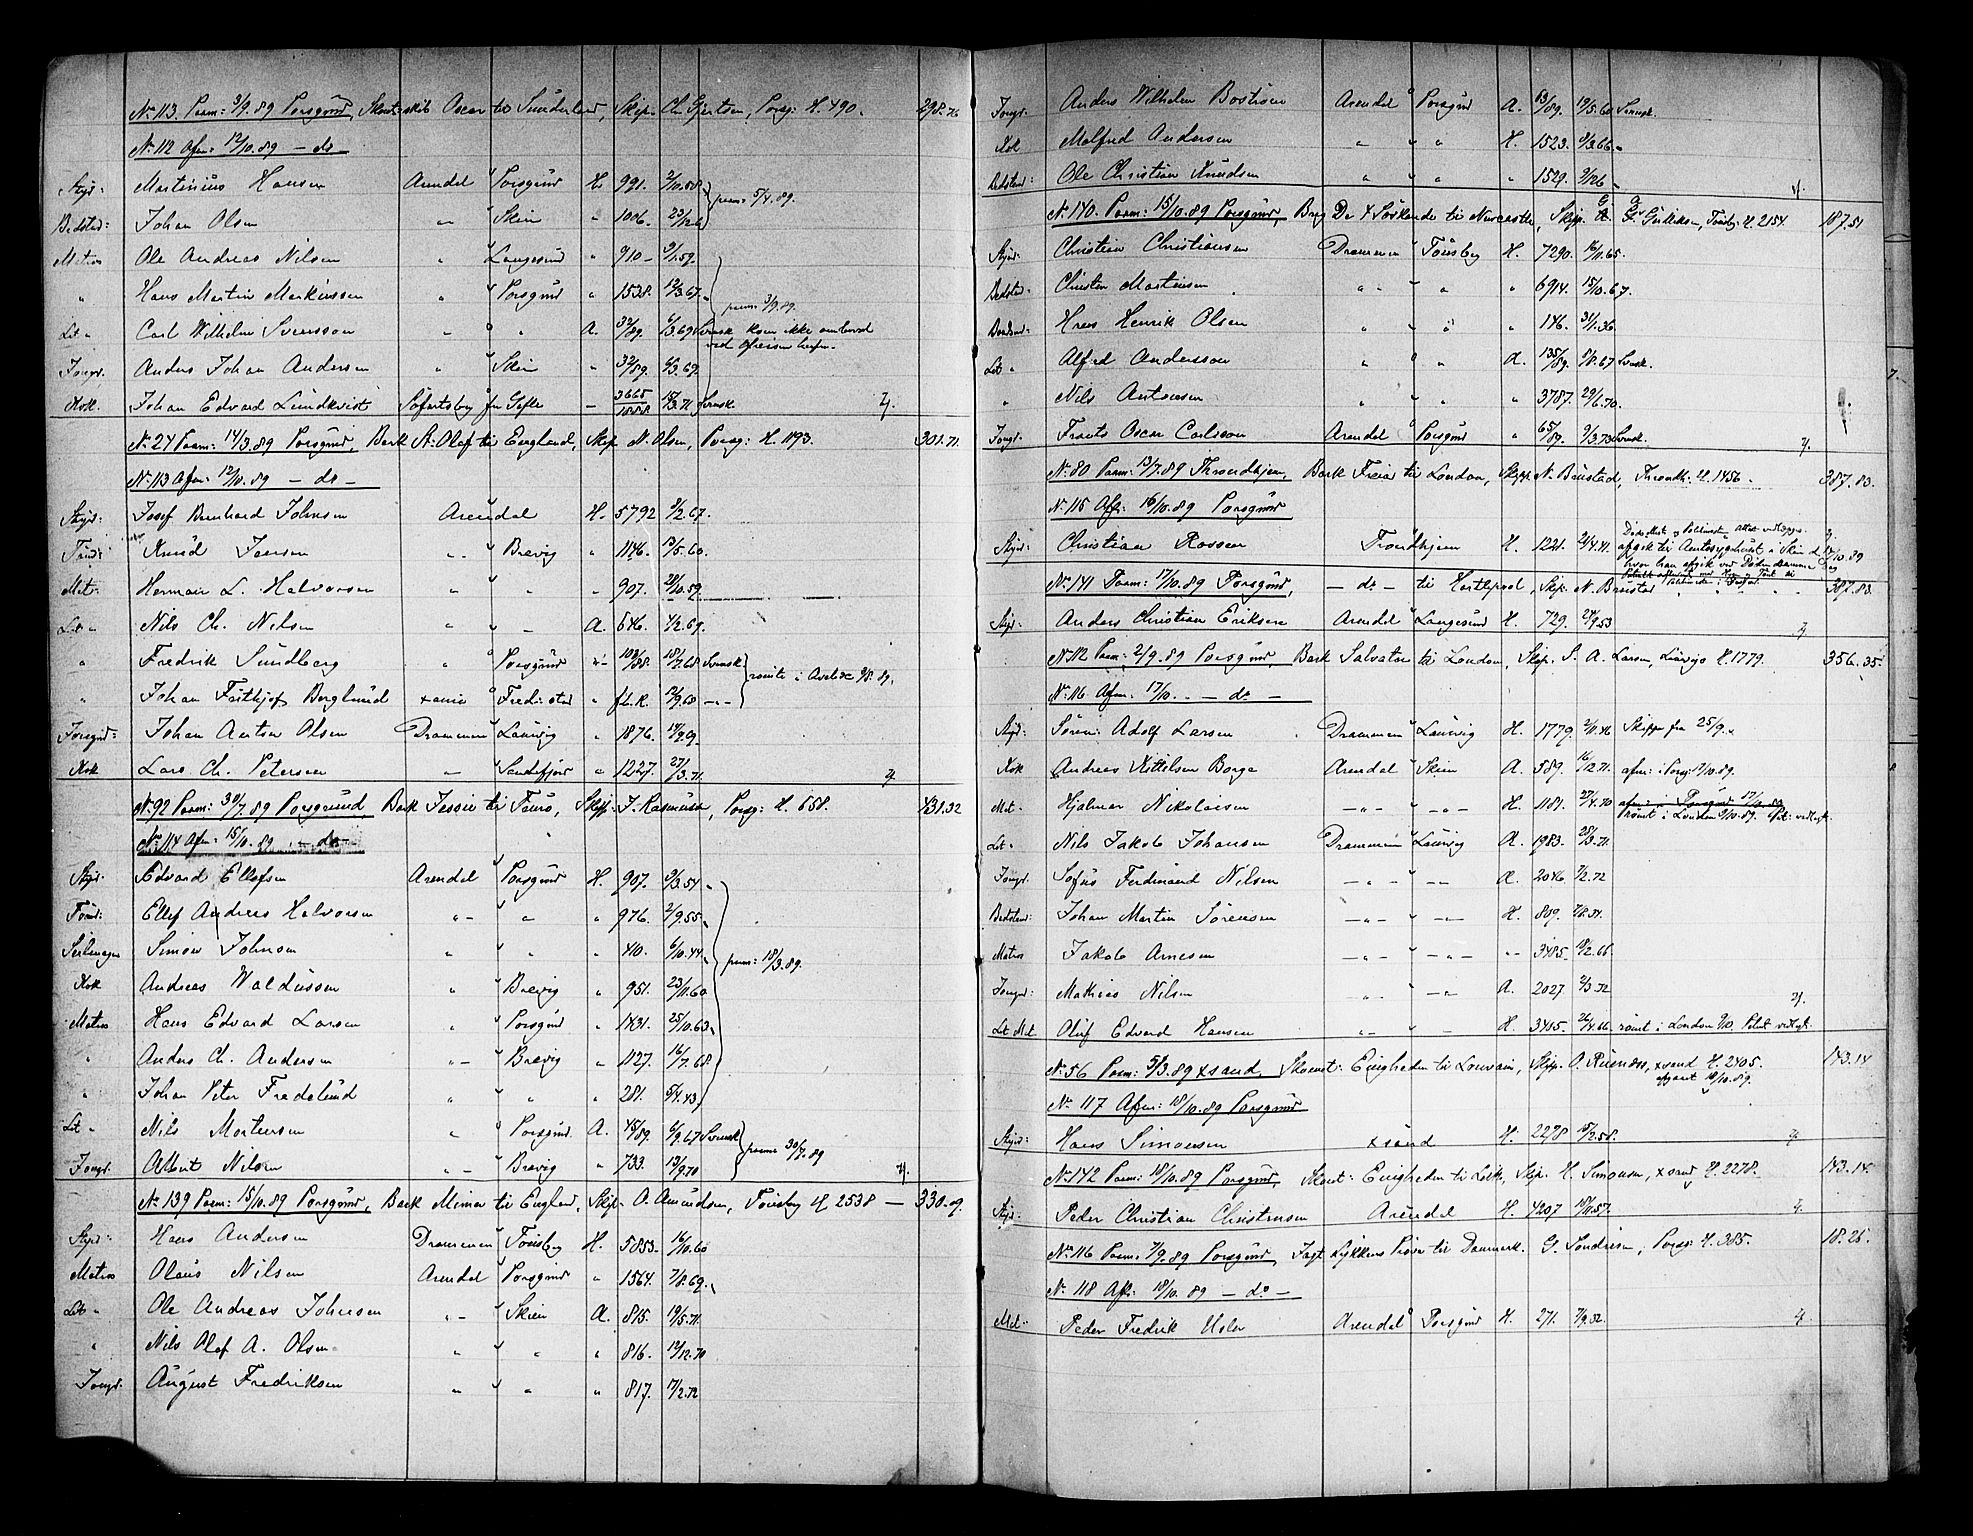 No 113. Paam: 3/9.89 Porsgrund, Skonnertskib Oscar til Sunderland, Skip. Ch. Gjertsen, Porsg: H. 490. 298.76
No 112 Afm: 12/10.89 — do —
Styr: Martinius Hansen Arendal Porsgrund H. 991. 2/10.58 paam: 5/4.89.
Bedstmd: Johan Olsen " Skien " 1006. 23/1.26
Matros Ole Andreas Nilsen " Langesund " 910 9/1.59.
" Hans Martin Markussen " Porsgrund " 1538. 12/3.67. paam: 3/9.89.
Let " Carl Wilhelm Svensson " " A. 32/89. 6/3.69 Svensk kom ikke ombord
ved Afreisen herfra.
Jungm. Anders Johan Andersen " Skien " 32/89. 4/3.69.
Kok. Johan Edvard Lundkvist Söfartsbog fra Gefle — 3665/1888 15/3.71 Svensk.
No 24 Paam: 14/3.89 Porsgrund, Bark St. Olaf til England, Skip. N. Olsen, Porsg: H. 1193. 301.71.
No 113 Afm: 12/10.89 — do —
Styr: Josef Bernhard Johnsen Arendal H. 5792 2/2.67.
Knud Jensen " Brevig " 1146. 12/5.60.
Mat: Herman L. Halvorsen " " " 907. 20/10.59.
Let " Nils Ch. Nilsen " " A. 646. 4/2.69.
" Fredrik Sundberg " Porsgrund " 103/88. 18/7.68 Svensk
" Johan Frithjof Berglund xania Fred:stad " fol. R. 12/9.68 —
Jungmd: Johan Anton Olsen Drammen Laurvig " 1876. 14/9.69
Kok Lars Ch. Petersen — Sandefjord " 1227. 27/3.71.
No 92 Paam: 30/7.89 Porsgrund, Bark Jessie til Truro, Skip. J. Rasmussen, Porsg: H. 658. 431.32
No 114 Afm: 15/10.89 — do —
Styr. Edvard Ellefsen Arendal Porsgrund H. 907. 9/3.54.
Tömd: Ellef Andreas Halvorsen " " " 976. 2/9.55.
Seilmager Simon Johnson " " " 410. 6/10.44. paam: 18/3.89.
Kok Andreas Waldussen " Brevig " 951. 23/11.60
Matros Hans Edvard Larsen " Porsgrund " 1431. 25/10.63.
" Anders Ch. Andersen " Brevig " 1127. 16/7.68.
" Johan Peter Fredslund " " " 281. 5/4.43.
Let " Nils Mortensen " Porsgrund. A. 45/89. 6/9.67 Svensk paam: 30/7.89
Jungm. Albert Nilsen " Brevig " 733. 13/9.70
No 139 Paam: 15/10.89 Porsgrund, Bark Mimer til England, Skip. O. Amundsen, Tönsberg H 2538 — 330.09.
Styr: Hans Andersen Drammen Tönsberg H. 5853. 16/10.60
Matros Olaus Nilsen Arendal Porsgrund " 1564. 7/8.69.
Let " Ole Andreas Johnsen " Skien A. 815. 19/5.71.
" Nils Olaf A. Olsen " " " 816. 12/12.70
Jungm. August Fredriksen " " " 817. 17/2.72
Jungm. Anders Wilhelm Boström Arendal Porsgrund A. 63/89. 19/5.60 Svensk.
Kok Malfred Andersen " " H. 1523. 3/3.66.
Bedstmd: Ole Christian Knudsen " " " 1529. 2/1.26
No 140. Paam: 15/10.89 Porsgrund, Brig De 4 Söskende til Newcastle, Skip. G. Gulliksen, Tönsb: H. 2154. 187.51
Styr: Christian Christiansen Drammen Tönsberg H. 7290. 16/11.65.
Bedstmd: Christen Martinsen " " " 6914. 15/10.67.
Hans Henrik Olsen " " " 146. 31/1.36.
Let " Alfred Andersson " " A. 135/89. 8/8.67 Svensk.
" Nils Antonsen " " " 3787. 29/6.70.
Jungm. Frants Oscar Carlsson Arendal Porsgrund " 65/89. 9/3.73 Svensk.
No 80 Paam: 13/7.89 Throndhjem, Bark Freia til London, Skip. N. Brustad, Throndh: H. 1456. 387.83.
No 115 Afm: 16/10.89 Porsgrund
Styr: Christian Rossen Trondhjem H. 1221. 24/4.41.
afgik til Amtssygehuset i Skien
hvor han afgik ved Döden samme Dag
No 141 Paam: 17/10.89 Porsgrund, — do — til Hartlepool, Skip. N. Brustad 387.83.
Styr Anders Christian Eriksen Arendal Langesund H. 729. 24/9.53
No 112 Paam: 2/9.89 Porsgrund Bark Salvator til London, Skip. S. A. Larsen, Laurvig H. 1779. 356.35.
No 116 Afm. 17/10. — do —
Styr: Sören Adolf Larsen Drammen Laurvig H. 1779. 2/11.46 Skipper fra 25/9.
Kok Andreas Kittilsen Borge Arendal Skien A. 589. 16/12.71. afm: i Porsg: 17/10.89.
Mat. Hjalmar Nikolaisen " " H. 1181. 27/4.70 afm: i Porsgrund 17/10.89
römt i London 9/10.89. Pol: vedlagt.
Let " Nils Jakob Johansen Drammen Laurvig A. 1983. 28/3.71.
Jungm. Sofus Ferdinand Nilsen " " A. 2046. 7/2.72
Bedstmd: Johan Martin Sörensen " " H. 809. 7/8.31.
Matros Jakob Arnesen " " " 3485. 10/2.66.
Jungm: Mathias Nilsen " " A. 2027 2/3.72
Let Mat Oluf Edvard Hansen " " H. 3405. 26/4.66. römt i London 9/10. Polit vedlagt.
No 56 Paam: 5/3.89 xsand, Skonnert: Enigheden til Louvain, Skip. O. Knudsen, xsand H. 2405. 143.14
afgaaet 18/10.89.
No 117 Afm: 18/10.89 Porsgrund
Styr: Hans Simonsen xsand H. 2278 15/2.58.
No 142 Paam: 18/10.89 Porsgrund, Skonnert: Enigheden til Leith, Skip. H. Simonsen, xsand H. 2278. 143.14.
Styr: Peder Christian Christensen Arendal H. 4207 18/11.57.
No 116 Paam: 7/9.89 Porsgrund, Jagt Lykkens Pröve til Danmark. G. Tondresen, Porsg: H. 385. 18.25.
No 118 Afm: 18/10.89 — do —
Mat. Peder Fredrik Usler Arendal Porsgrund H. 271. 7/9.32.